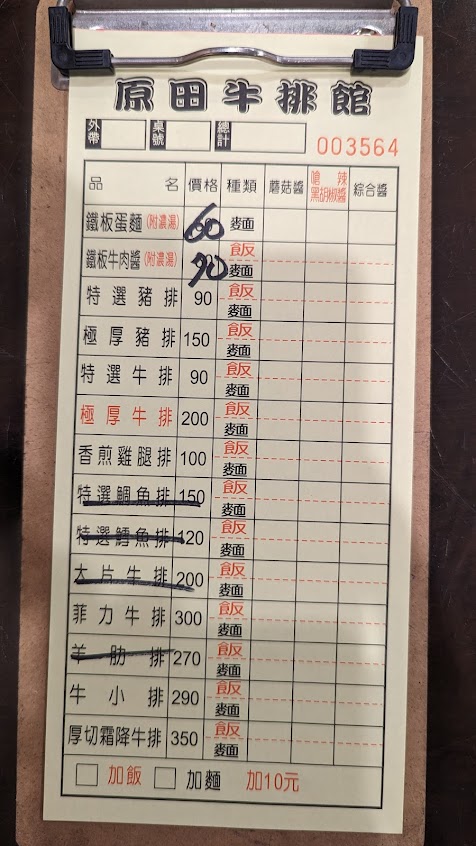 原田牛排館
外帶 桌號 總計 003564
品名 價格 種類 蘑菇醬 嗆辣黑胡椒醬 綜合醬
鐵板蛋麵(附濃湯) 60 麥面
鐵板牛肉醬(附濃湯) 90 飯 麥面
特選豬排 90 飯 麥面
極厚豬排 150 飯 麥面
特選牛排 90 飯 麥面
極厚牛排 200 飯 麥面
香煎雞腿排 100 飯 麥面
特選鯛魚排 150 飯 麥面
特選鱈魚排 120 飯 麥面
大片牛排 200 飯 麥面
菲力牛排 300 飯 麥面
羊肋排 270 飯 麥面
牛小排 290 飯 麥面
厚切霜降牛排 350 飯 麥面
加飯 加麵 加10元